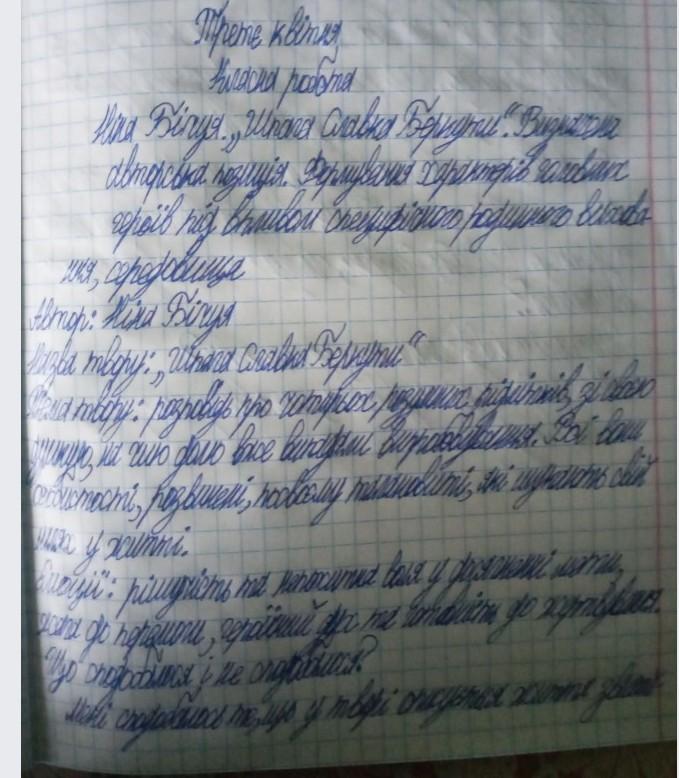 Третє квітня
Класна робота
Ніна Бічуя. „Шпага Славка Беркути". Визначена
авторська позиція. Формування характерів головних
героїв під впливом специфічного родинного вихова-
ння, середовища
Автор: Ніна Бічуя
Назва твору: „Шпага Славка Беркути"
Тема твору: розповідь про чотирьох розумних підлітків, зі своєю
на чию долю вже випали випробування. Всі вони
особистості, розвинені, по-своєму талановиті, які шукають свій
шлях у житті.
Емоції: рішучість та непохитна воля у досягненні мети,
жага до перемоги, героїчний дух та готовність до
Що сподобалося і не сподобалося?
Мені сподобалось те, що у творі описується життя